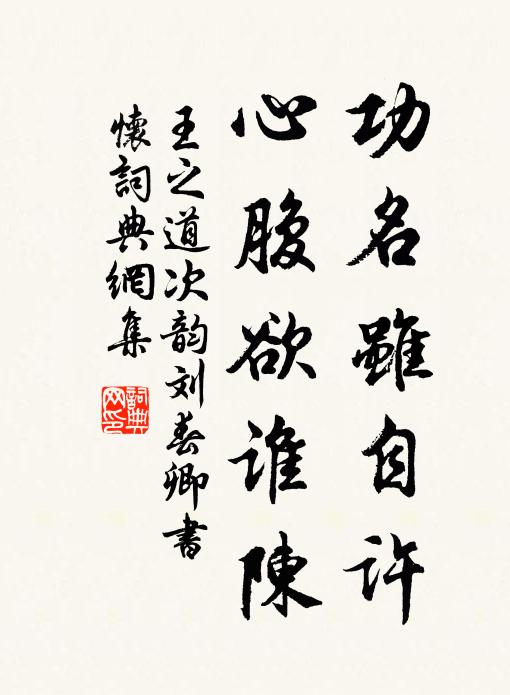 功名雖自許
心腹欲誰陳
王之道次韵刘春卿書
懷詞典網集
詞典
网印